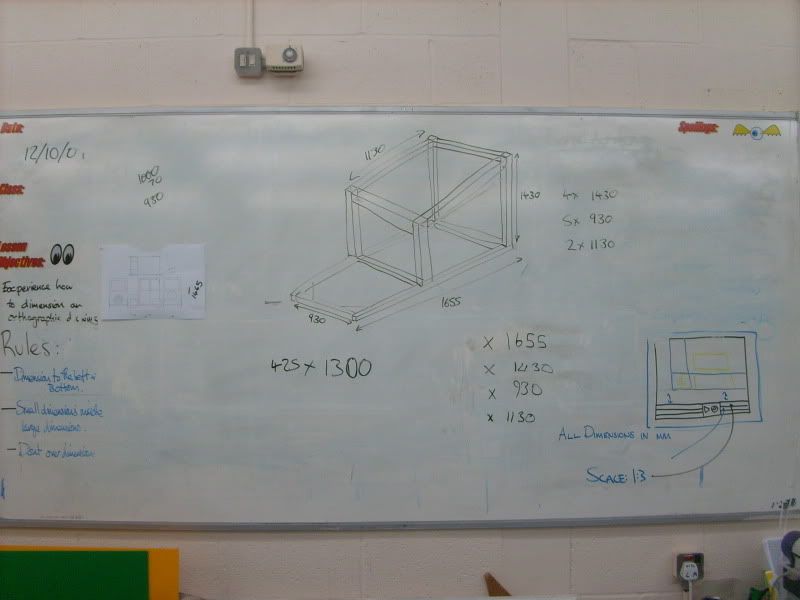 Date:
12/10/0
Class:
1600
70
930
Lesson
Objectives:
Experience how
to dimension an
orthographic
Rules:
— Dimension to the left &
Bottom.
— Small dimensions inside
large dimensions.
— Dont over dimension
1665
1130
1430
930
1655
4x 1430
5x 930
2x 1130
425 x 1300
x 1655
x 1430
x 930
x 1130
Spellings:
ALL DIMENSIONS IN MM
SCALE: 1:3